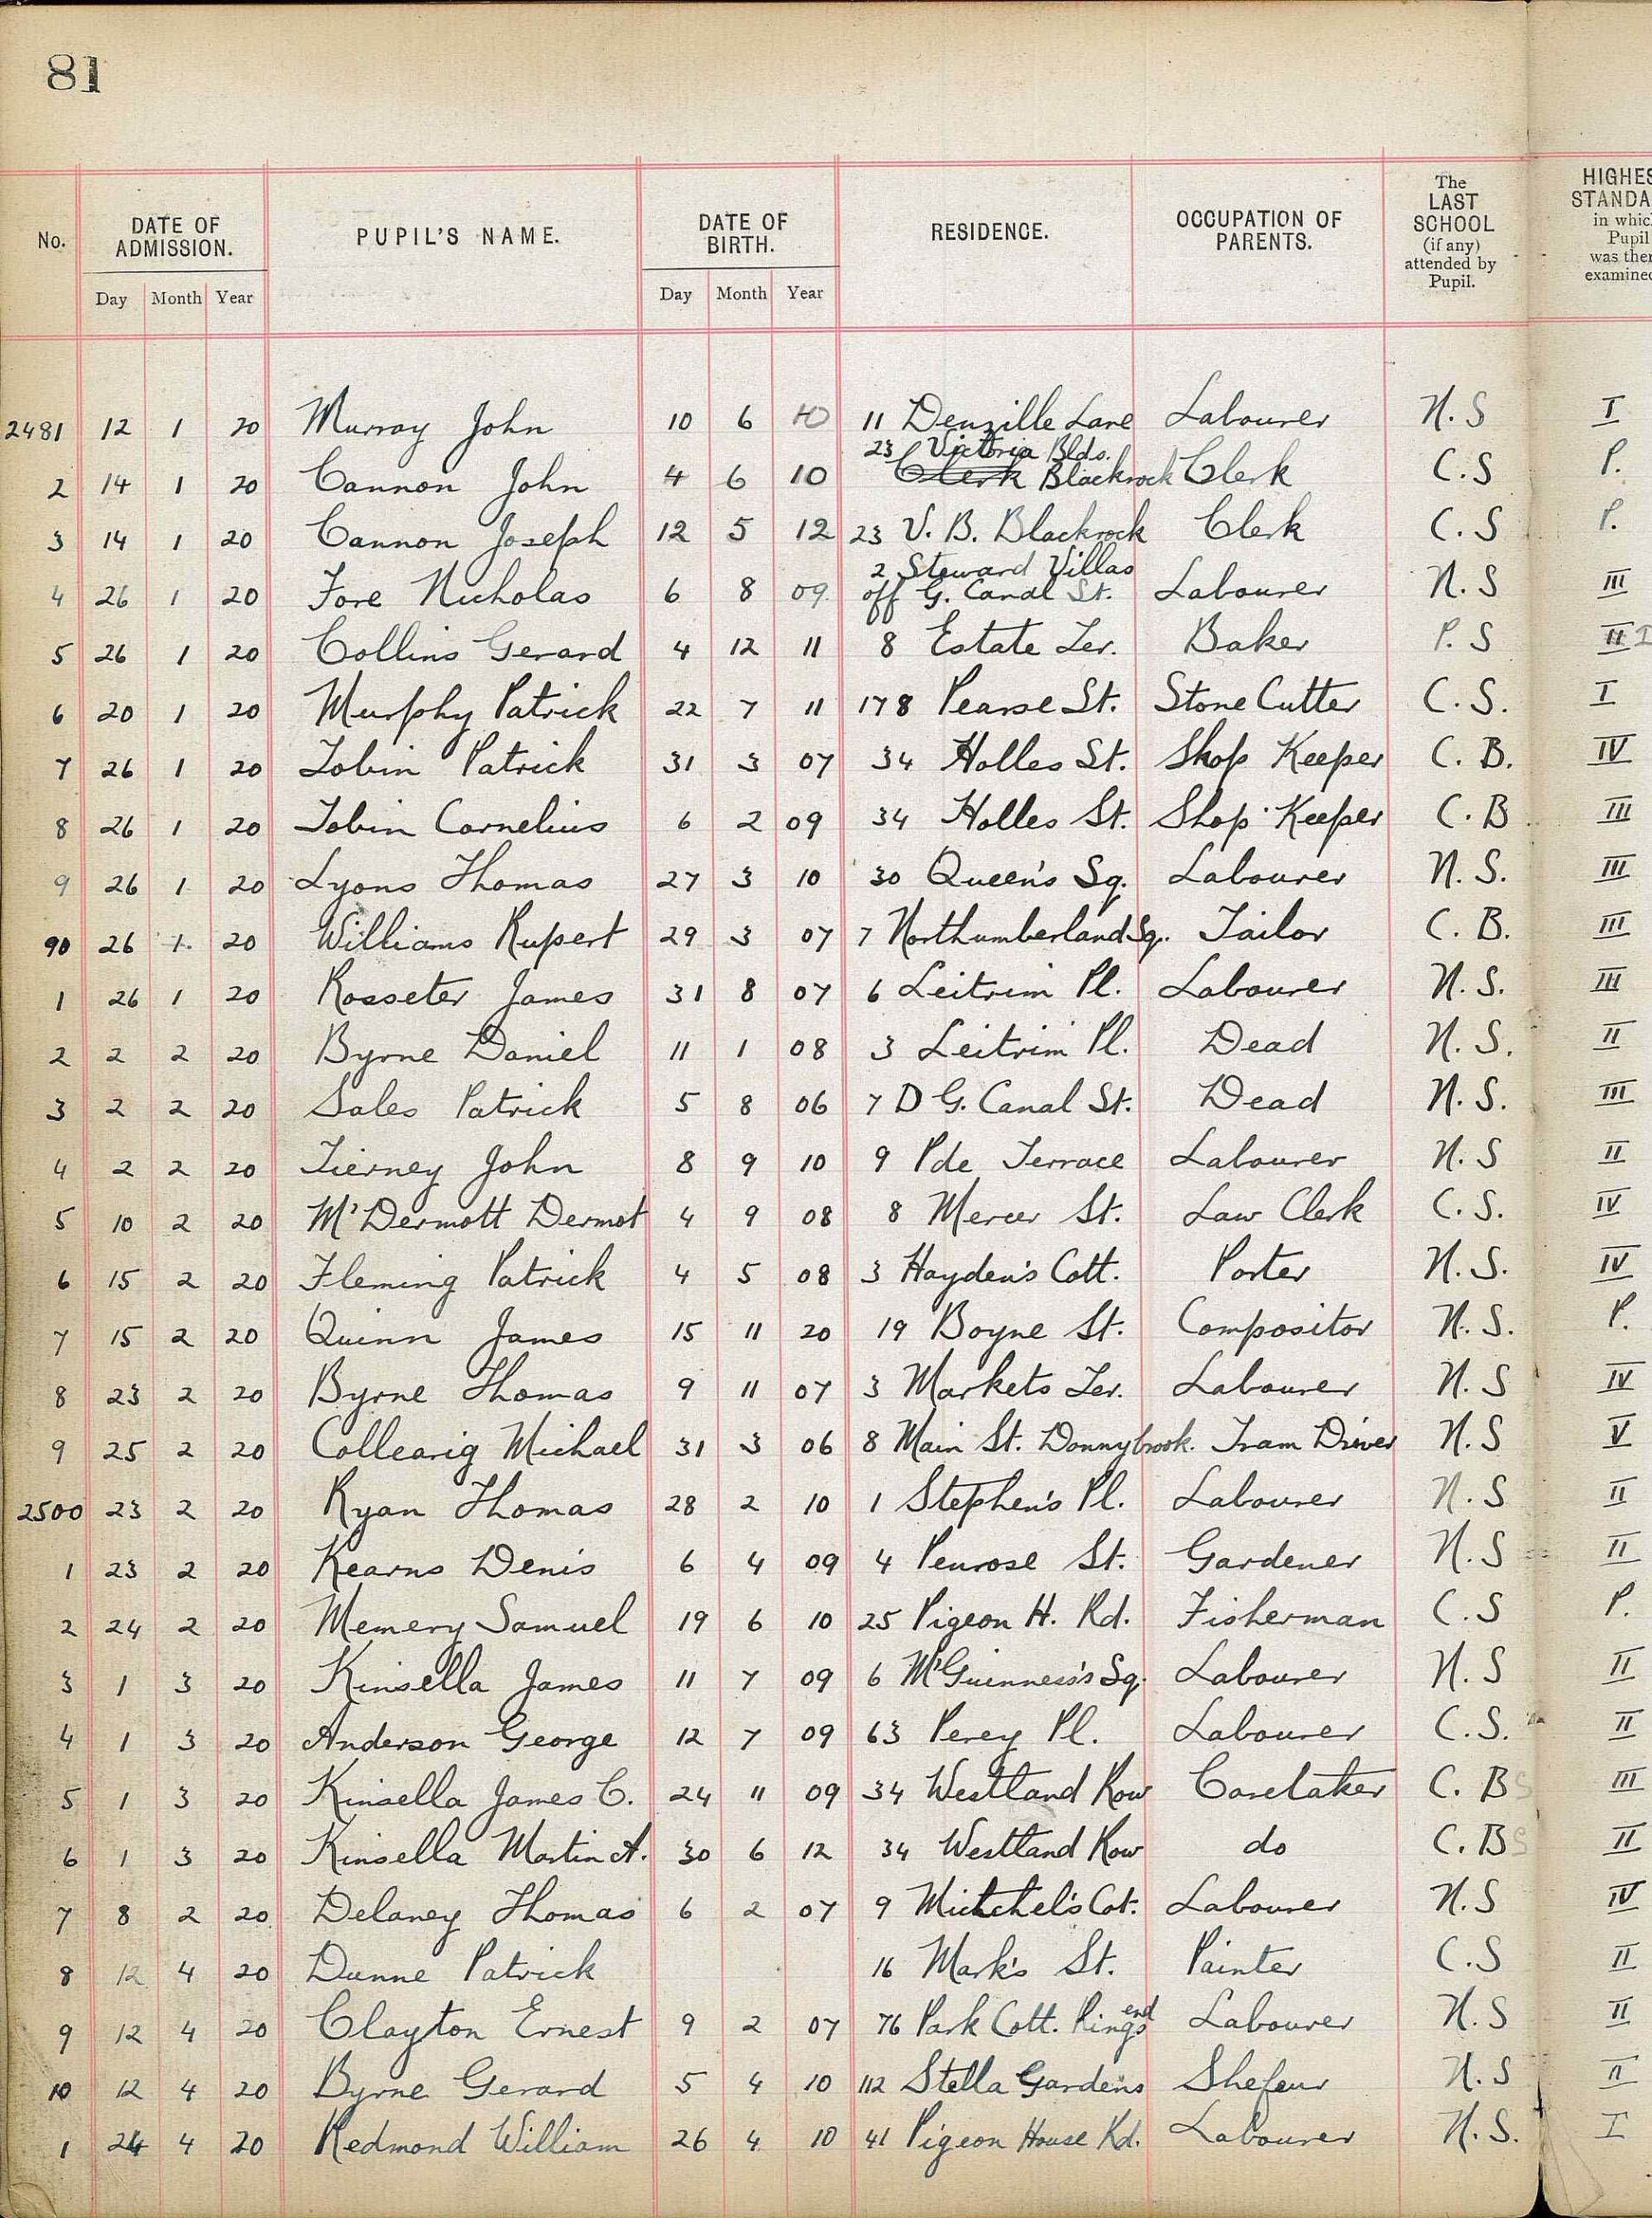 81
No. DATE OF ADMISSION. PUPIL'S NAME. DATE OF BIRTH. RESIDENCE. OCCUPATION OF PARENTS. The LAST SCHOOL (if any) attended by Pupil. HIGHES STANDA in whic Pupil was the examine
Day Month Year Day Month Year
2481 12 1 20 Murray John 10 6 10 11 Denzille Lane Labourer N.S I
23 Victoria Blds.
2 14 1 20 Cannon John 4 6 10 Clerk Blackrock Clerk C.S P.
3 14 1 20 Cannon Joseph 12 5 12 23 V. B. Blackrock Clerk C.S P.
2 Steward Villas
4 26 1 20 Fore Nicholas 6 8 09 off G. Canal St. Labourer N.S III
5 26 1 20 Collins Gerard 4 12 11 8 Estate Ter. Baker P.S II I
6 20 1 20 Murphy Patrick 22 7 11 178 Pearse St. Stone Cutter C.S. I
7 26 1 20 Tobin Patrick 31 3 07 34 Holles St. Shop Keeper C.B. IV
8 26 1 20 Tobin Cornelius 6 2 09 34 Holles St. Shop Keeper C.B III
9 26 1 20 Lyons Thomas 27 3 10 30 Queen's Sq. Labourer N.S. III
90 26 1 20 Williams Rupert 29 3 07 7 Northumberland Sq. Tailor C.B. III
1 26 1 20 Rosseter James 31 8 07 6 Leitrim Pl. Labourer N.S. III
2 2 2 20 Byrne Daniel 11 1 08 3 Leitrim Pl. Dead N.S. II
3 2 2 20 Sales Patrick 5 8 06 7 D G. Canal St. Dead N.S. III
4 2 2 20 Tierney John 8 9 10 9 Pde Terrace Labourer N.S II
5 10 2 20 M'Dermott Dermot 4 9 08 8 Mercer St. Law Clerk C.S. IV
6 15 2 20 Fleming Patrick 4 5 08 3 Hayden's Cott. Porter N.S. IV
7 15 2 20 Quinn James 15 11 20 19 Boyne St. Compositor N.S. P.
8 23 2 20 Byrne Thomas 9 11 07 3 Markets Ter. Labourer N.S IV
9 25 2 20 Collearig Michael 31 3 06 8 Main St. Donnybrook. Tram Driver N.S V
2500 23 2 20 Ryan Thomas 28 2 10 1 Stephen's Pl. Labourer N.S II
1 23 2 20 Kearns Denis 6 4 09 4 Penrose St. Gardener N.S II
2 24 2 20 Memery Samuel 19 6 10 25 Pigeon H. Rd. Fisherman C.S P.
3 1 3 20 Kinsella James 11 7 09 6 M'Guinness's Sq. Labourer N.S II
4 1 3 20 Anderson George 12 7 09 63 Percy Pl. Labourer C.S. II
5 1 3 20 Kinsella James C. 24 11 09 34 Westland Row Caretaker C.BS III
6 1 3 20 Kinsella Martin A. 30 6 12 34 Westland Row do C.BS II
7 8 2 20 Delaney Thomas 6 2 07 9 Mitchel's Cot. Labourer N.S IV
8 12 4 20 Dunne Patrick 16 Mark's St. Painter C.S II
9 12 4 20 Clayton Ernest 9 2 07 76 Park Cott. Ringsend Labourer N.S II
10 12 4 20 Byrne Gerard 5 4 10 112 Stella Gardens Shefeur N.S II
1 24 4 20 Redmond William 26 4 10 41 Pigeon House Rd. Labourer N.S. I